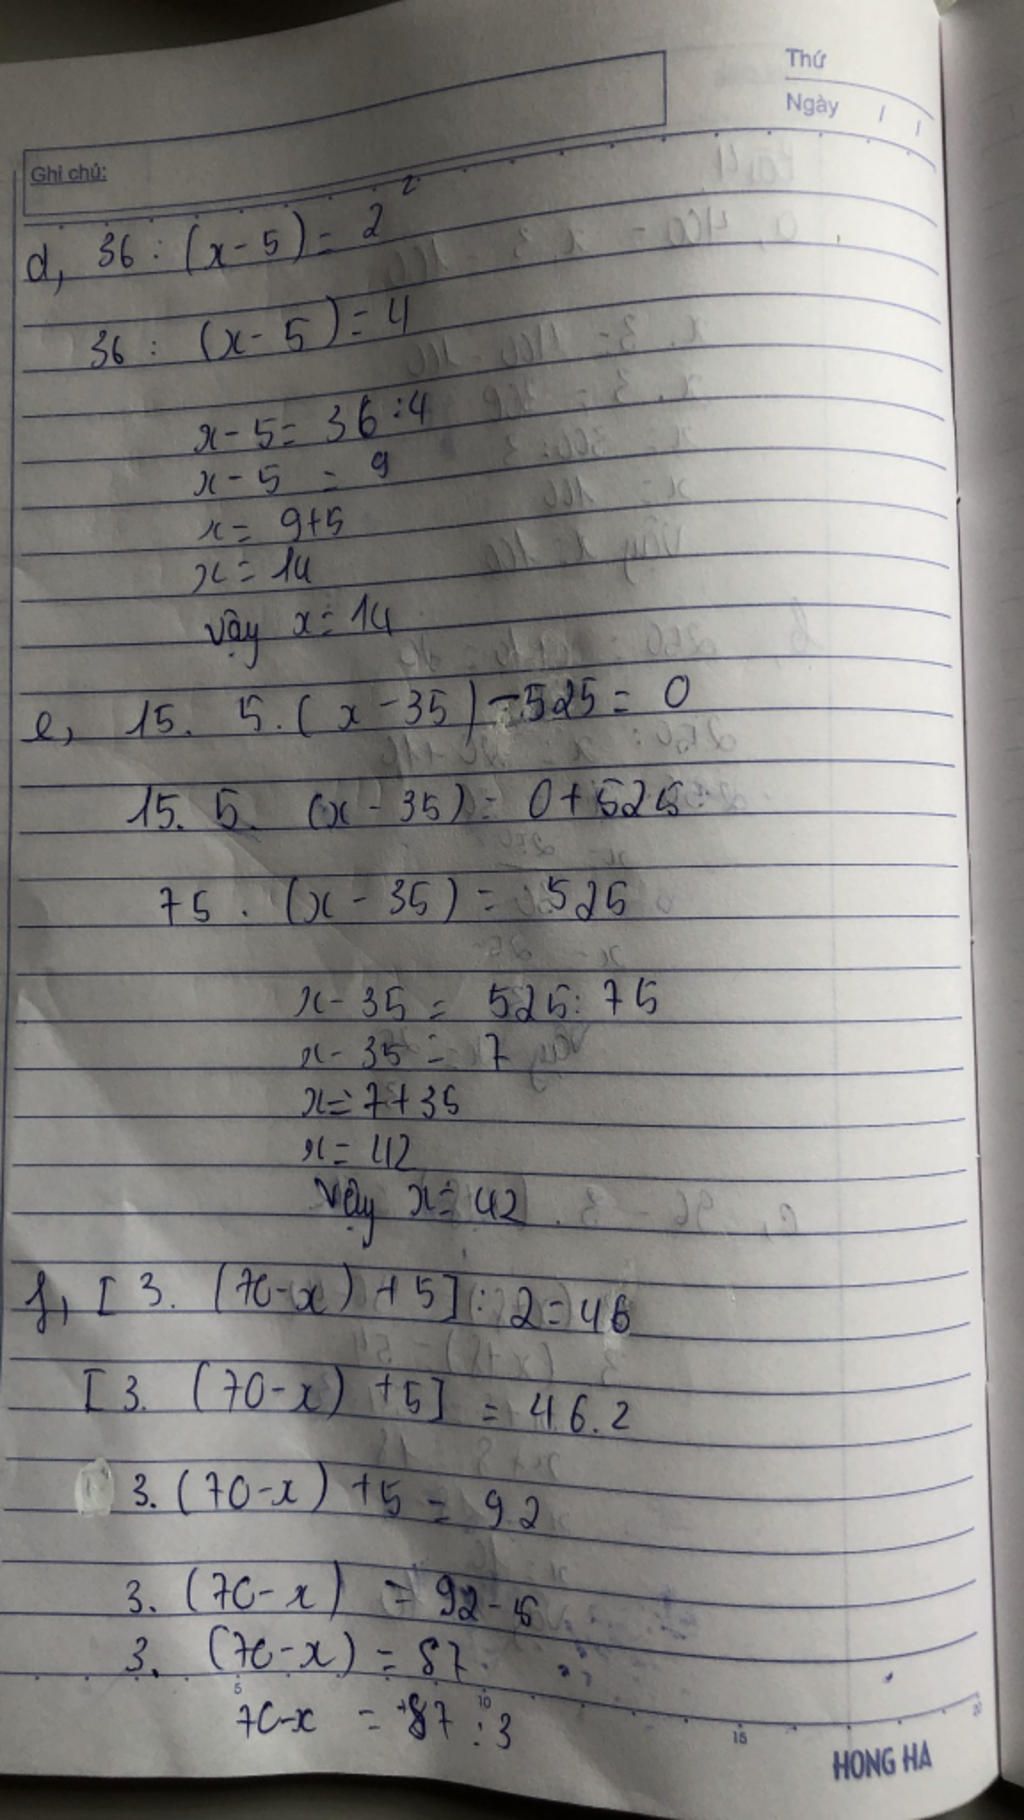 Thứ
Ngày / /
Ghi chú:
d, 36 : (x - 5) = 2²
36 : (x - 5) = 4
x - 5 = 36 : 4
x - 5 = 9
x = 9 + 5
x = 14
Vậy x = 14
e, 15. 5. (x - 35) - 525 = 0
15. 5. (x - 35) = 0 + 525
75 . (x - 35) = 525
x - 35 = 525 : 75
x - 35 = 7
x = 7 + 35
x = 42
Vậy x = 42
f, [ 3. (70 - x) + 5] : 2 = 46
[ 3. (70 - x) + 5] = 46. 2
3. (70 - x) + 5 = 92
3. (70 - x) = 92 - 5
3. (70 - x) = 87
5 10 15 20
70 - x = 87 : 3
HONG HA